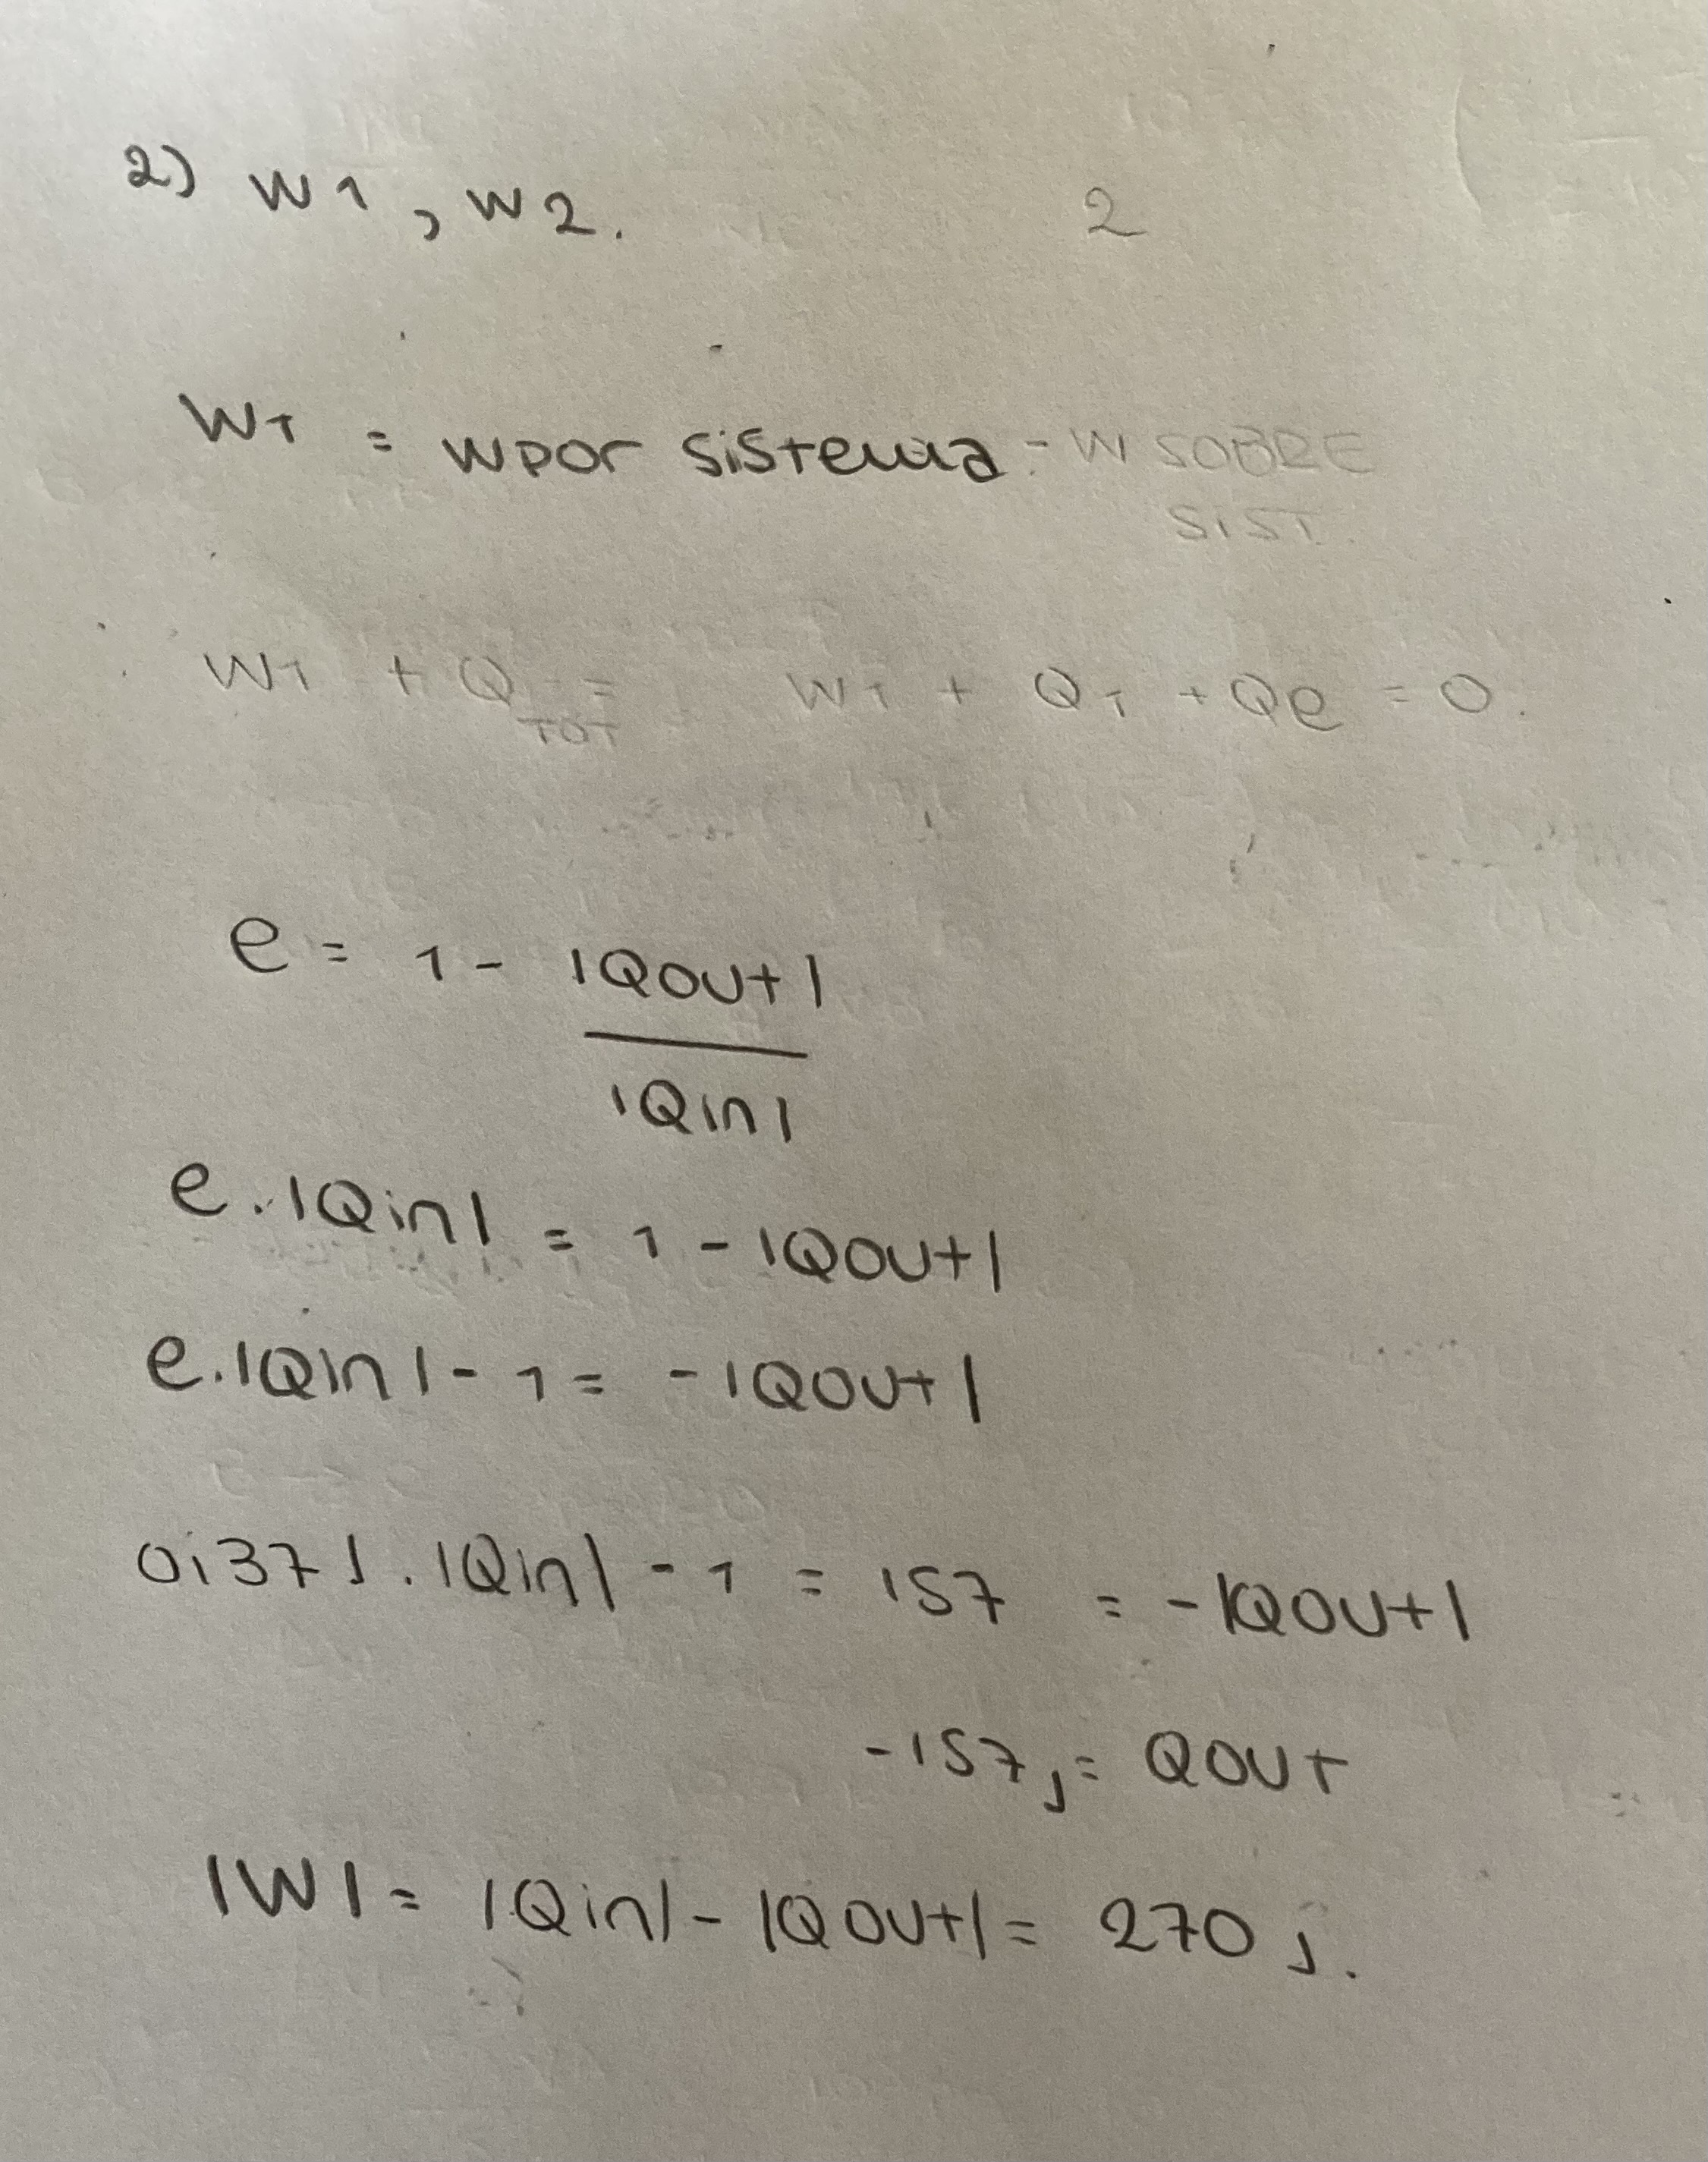 2) W1, W2. 2
WT = Wpor sistema - W SOBRE
SIST.
WT + QTOT = WT + QT + Qe = 0.
e = 1 - |Qout|
|Qin|
e.|Qin| = 1 - |Qout|
e.|Qin| - 1 = -|Qout|
0,37J.|Qin| - 1 = 157 = -|Qout|
-157J = Qout
|W| = |Qin| - |Qout| = 270 J.